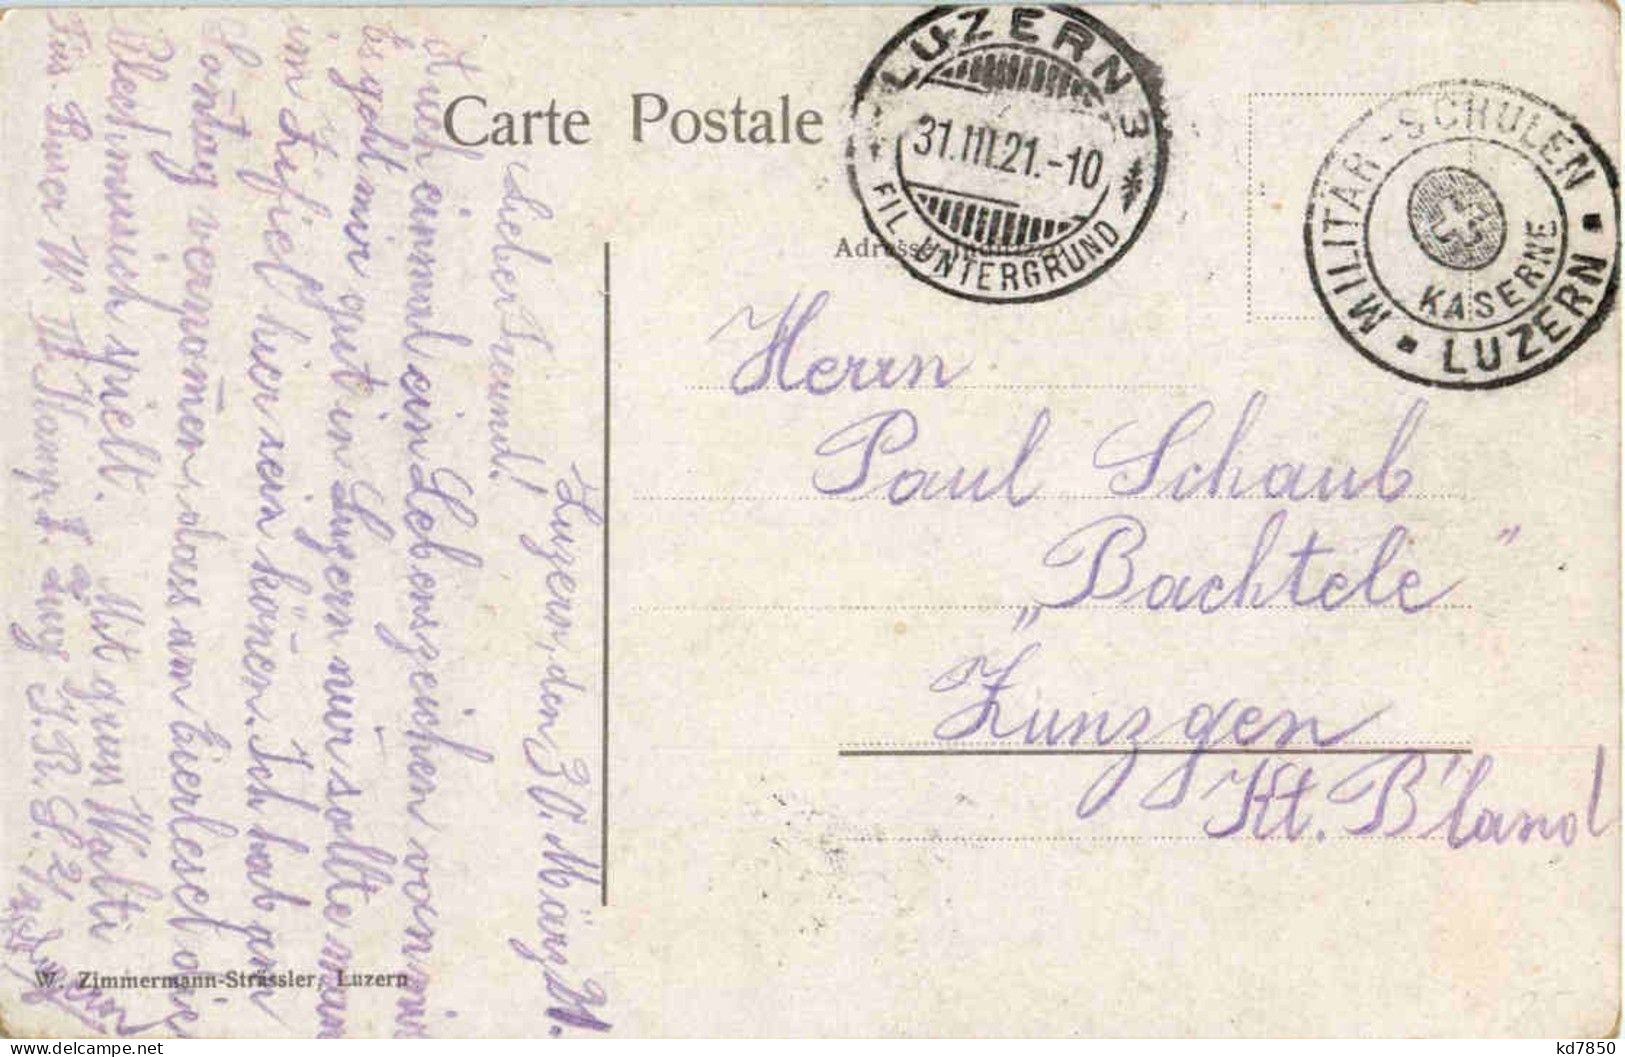 Carte Postale
LUZERN 3
31.III.21.-10
FIL. UNTERGRUND
MILITÄR-SCHULEN
KASERNE
LUZERN
Herrn
Paul Schaub
„Bachtele"
Zunzgen
Kt. B'land
Luzern, den 30. März 21.
Lieber Freund!
Auch einmal ein Lebenszeichen von mir
Es geht mir gut in Luzern nur sollte man
im Zivil hier sein kön̄en. Ich hab gern
Son̄tag vernom̄en, dass am Eierleset die
Blechmusich spielt. Mit gruss Walti
Füs. Buser W. III Komp. I. Zug I.R.S. 2/
W. Zimmermann-Strässler, Luzern
kd7850